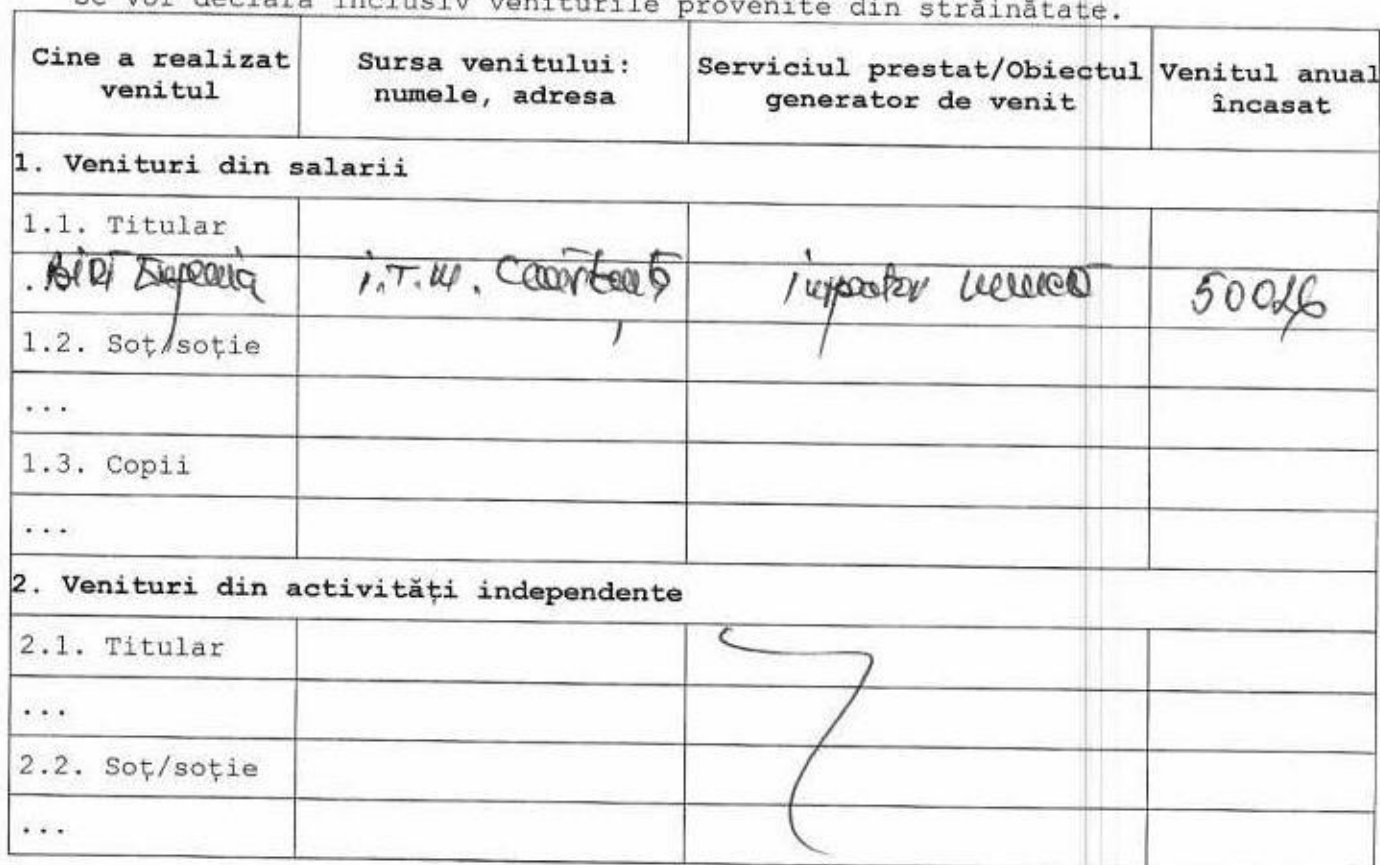 Se vor declara inclusiv veniturile provenite din străinătate.
Cine a realizat venitul
Sursa venitului: numele, adresa
Serviciul prestat/Obiectul generator de venit
Venitul anual încasat
1. Venituri din salarii
1.1. Titular
. I.T.M.
1.2. Soţ/soţie
...
1.3. Copii
...
2. Venituri din activităţi independente
2.1. Titular
...
2.2. Soţ/soţie
...